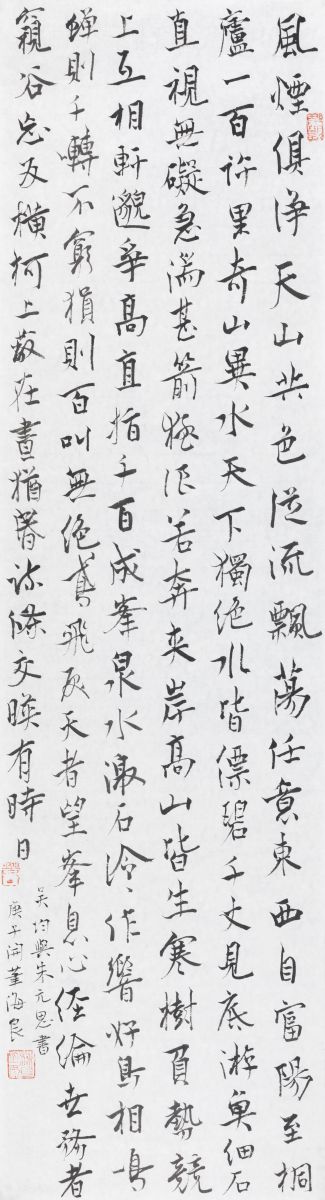 風煙俱淨天山共色從流飄蕩任意東西自富陽至桐
廬一百許里奇山異水天下獨絕水皆縹碧千丈見底游魚細石
直視無礙急湍甚箭猛浪若奔夾岸高山皆生寒樹負勢競
上互相軒邈爭高直指千百成峯泉水激石泠泠作響好鳥相鳴
蟬則千囀不窮猿則百叫無絕鳶飛戾天者望峯息心經綸世務者
窺谷忘反橫柯上蔽在晝猶昏疏條交暎有時日
吳均與朱元思書
庚子開董海良